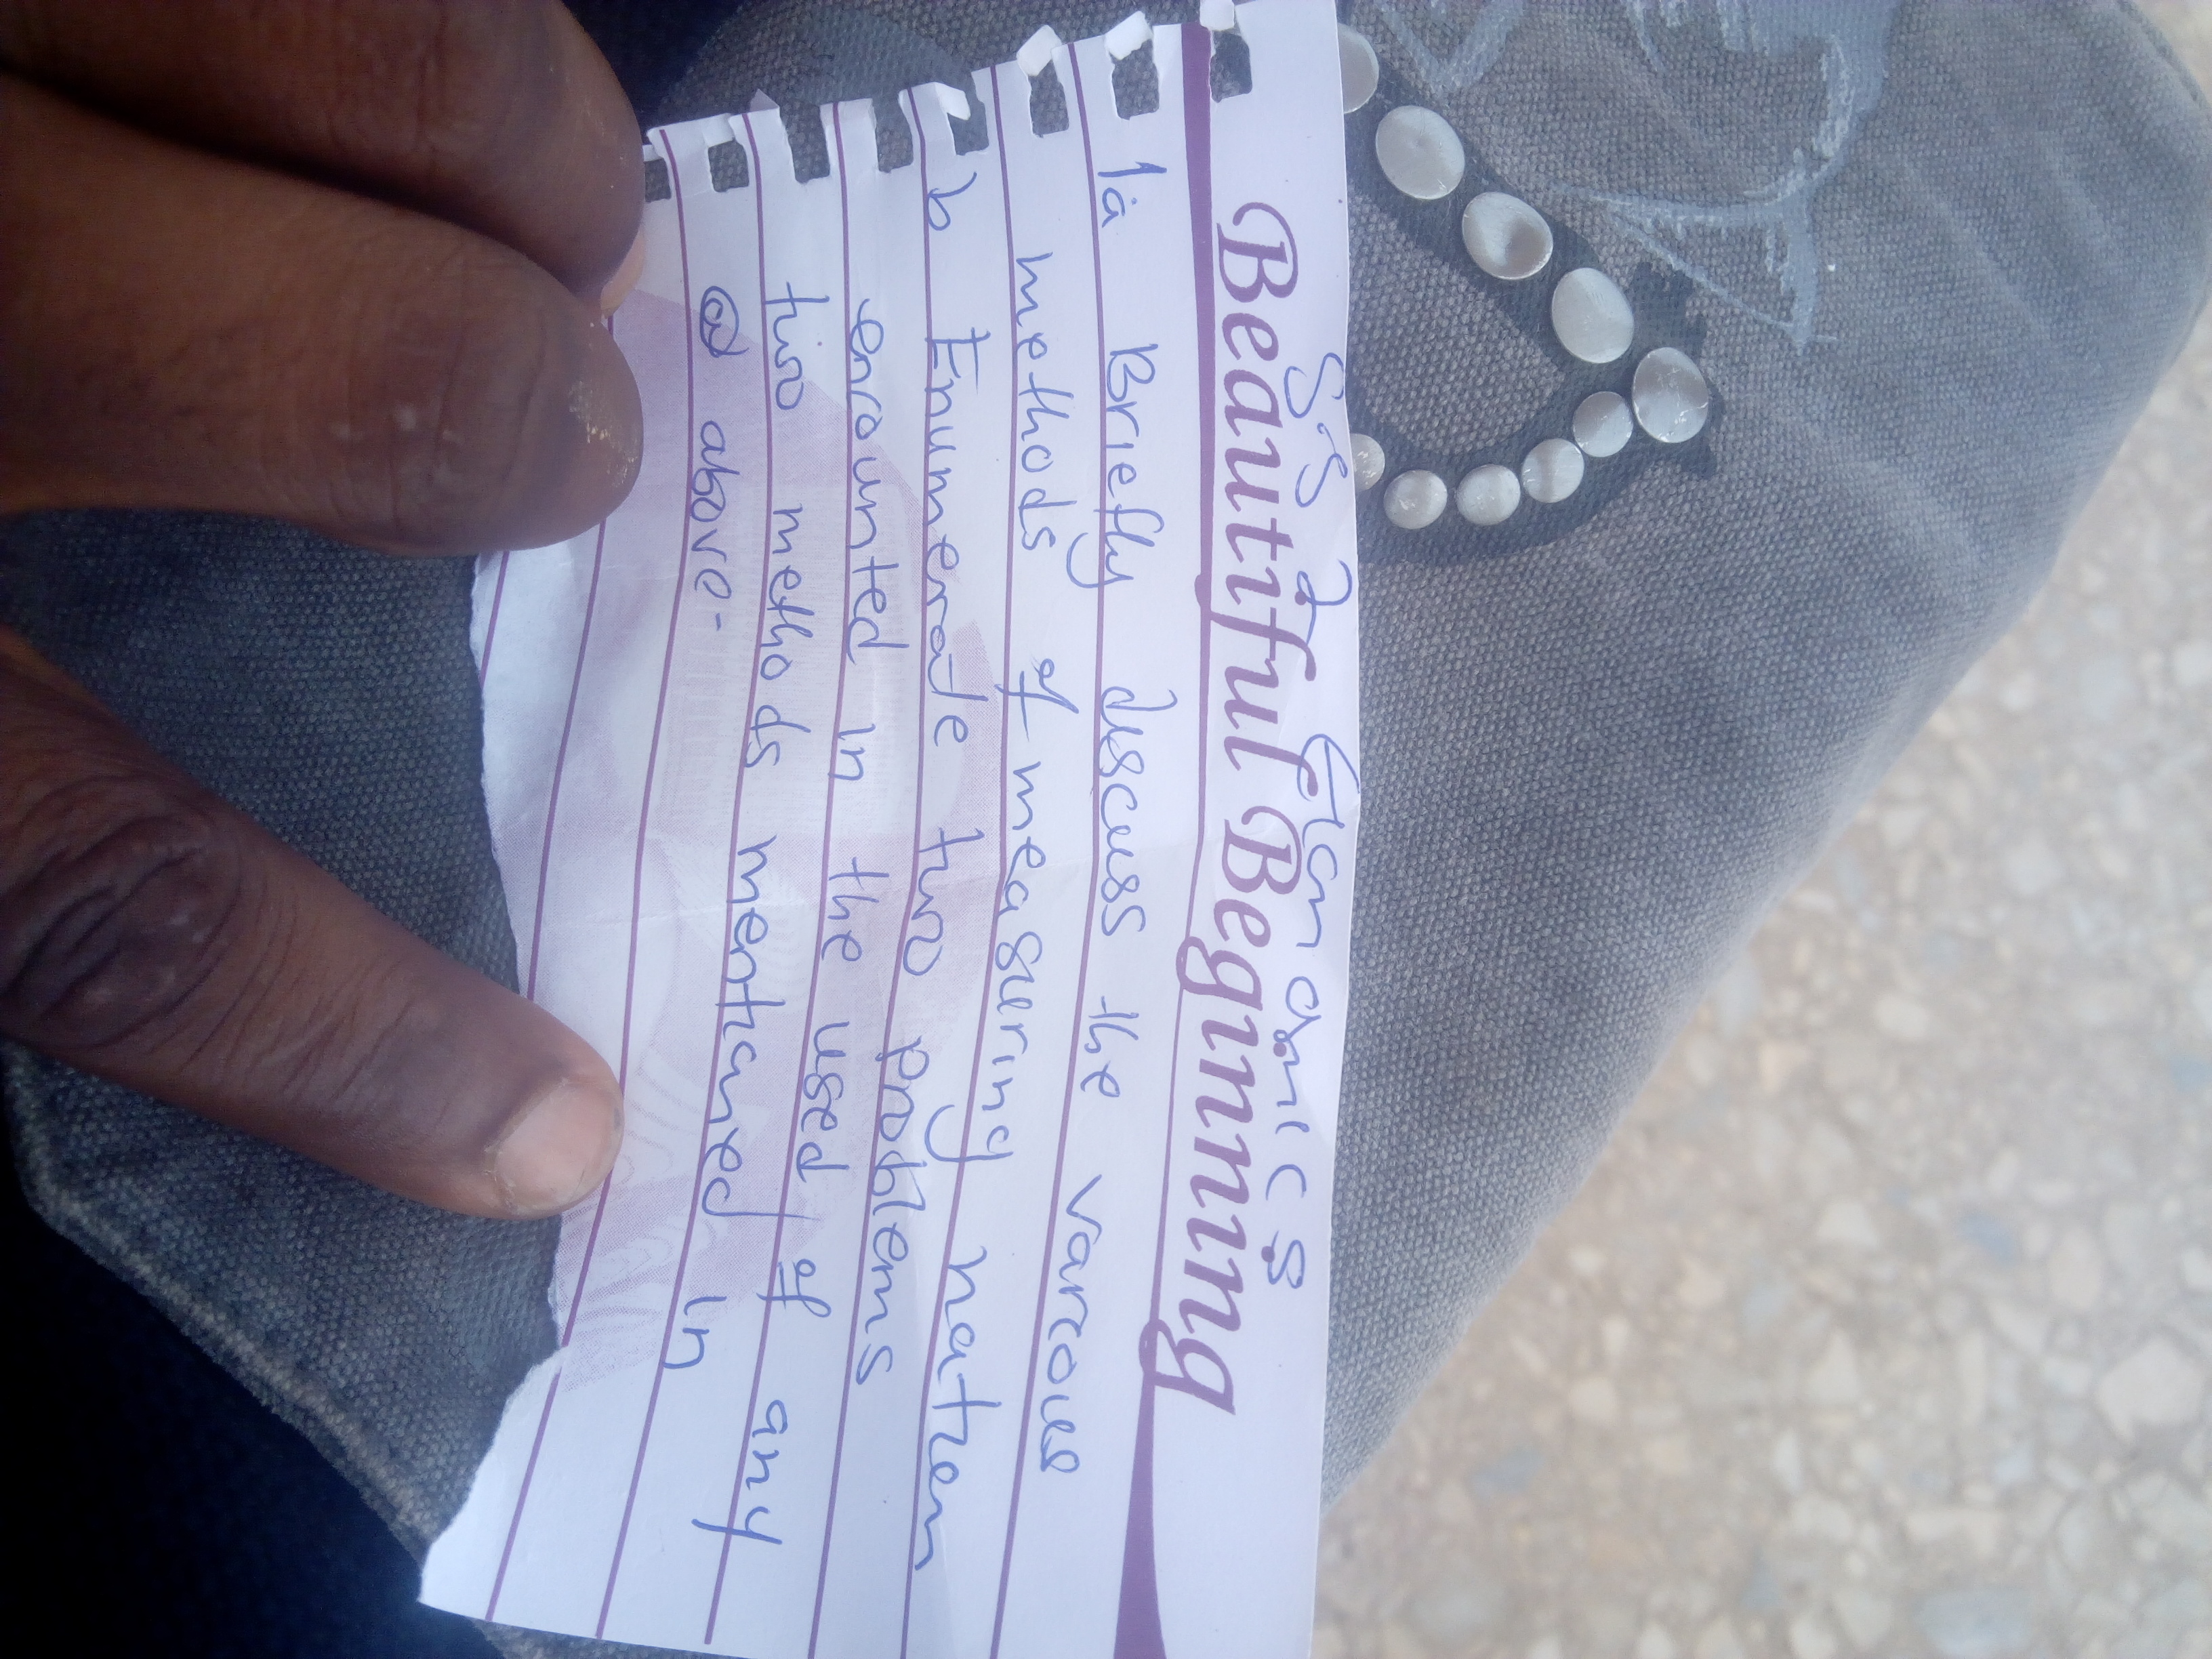 S.S 2 Economics
Beautiful Beginning
1a Briefly discuss the various
methods of measuring nation
b Enumerate two problems
encounted in the used of any
two methods mentioned in
@ above.